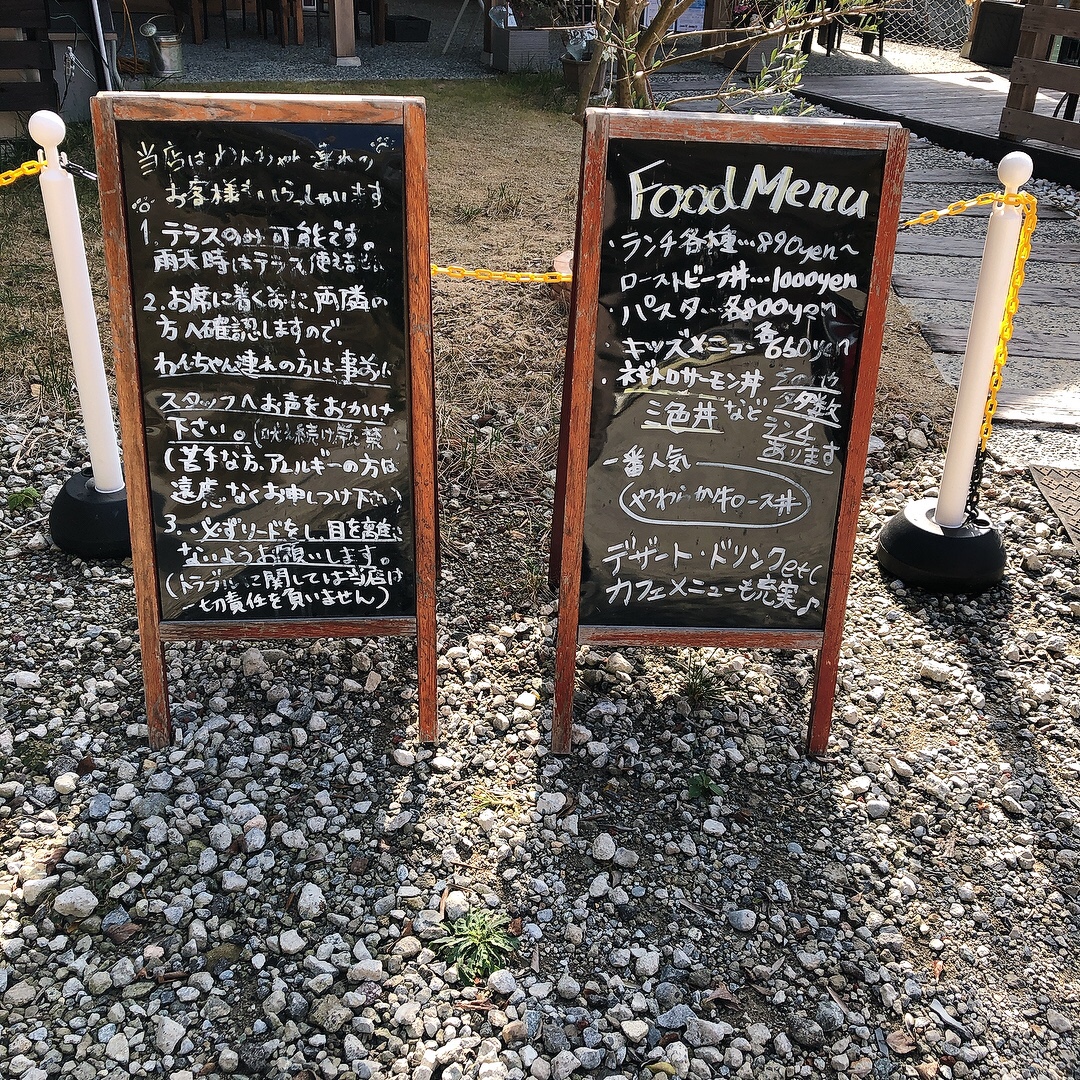 当店はわんちゃん連れの
お客様もいらっしゃいます
1. テラスのみ可能です。
雨天時はテラス使
2. お席に着く前に、両隣の
方へ確認しますので、
わんちゃん連れの方は事前に
スタッフへお声をおかけ
下さい。
(苦手な方、アレルギーの方は
遠慮なくお申しつけ下さい)
3. 必ずリードをし、目を離さ
ないようお願いします。
(トラブルに関しては当店は
一切責任を負いません)
Food Menu
・ランチ各種…890yen〜
ローストビーフ丼…1000yen
・パスタ…各800yen
・キッズメニュー各650yen
・ネギトロサーモン丼
三色丼など
多数
ランチ
あります
一番人気
やわらか牛ロース丼
デザート・ドリンクetc
カフェメニューも充実♪